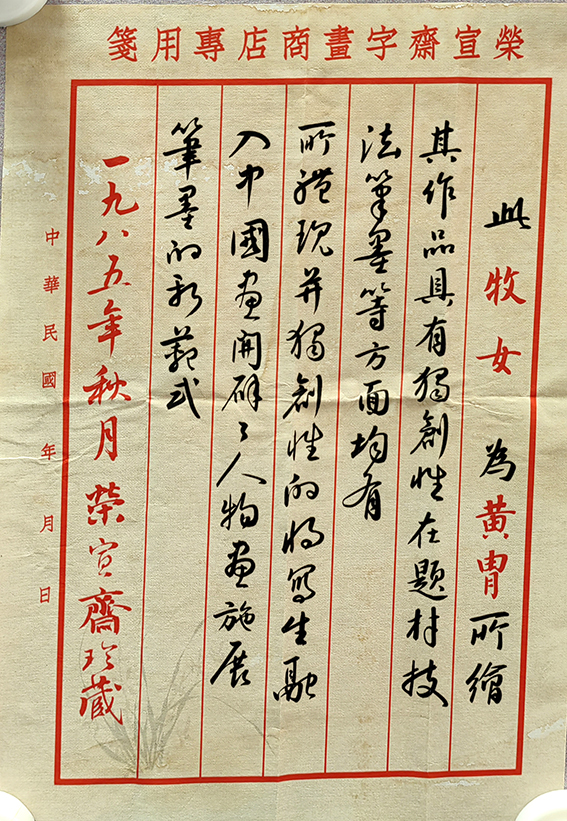 榮宣齋字畫商店專用箋
此牧女 為黃冑所繪
其作品具有獨創性在題材技
法筆墨等方面均有
所體現并獨創性的將寫生融
入中國畫開辟了人物畫施展
筆墨的新範式
一九八五年秋月榮宣齋珍藏
中華民國 年 月 日